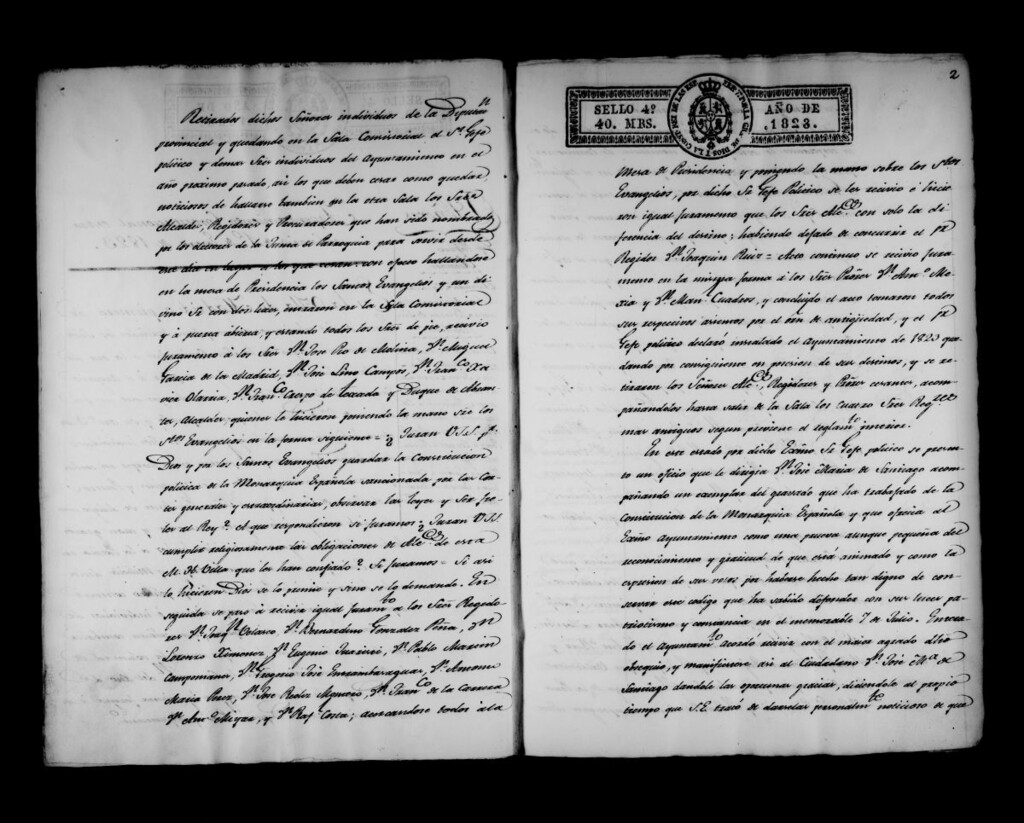 Retirados dichos Señores individuos de la Diputⁿ
provincial y quedando en la Sala Consistorial el Sʳ. Gefe
politico y demas Sres individuos del Ayuntamiento en el
año proximo pasado, asi los que deben cesar como quedar
noticiosos de hallarse tambien en la otra Sala los Sres
Alcaldes, Regidores y Procuradores que han sido nombrados
por los electores de la Junta de Parroquia para servir desde
este dia en lugar de los que cesan: con efecto hallandose
en la mesa de Presidencia los Santos Evangelios y un di-
vino Sʳ con dos luces, entraron en la Sala Consistorial
y á puerta abierta, y estando todos los Sres de pie, recivio
juramento á los Sres Dⁿ. Jose Pio de Molina, Dⁿ. Miguel
Garcia de la Madrid, Dⁿ. José Lino Campos, Dⁿ. Franᶜᵒ Xa-
vier Olarria, Dⁿ. Franᶜᵒ Crespo de Texada y Duque de Abran-
tes, Alcaldes, quienes le hicieron poniendo la mano sre los
Stos Evangelios en la forma siguiente = ¿Juran V.S.S. pʳ
Dios y por los Santos Evangelios guardar la Constitucion
politica de la Monarquia Española sancionada por las Cor-
tes generales y extraordinarias, observar las leyes y ser fie-
les al Rey? A que respondieron si juramos = ¿Juran V.S.S.
cumplir religiosamente las obligaciones de Alcᵉˢ de esta
M. H. Villa que les han confiado? Si juramos = Si asi
lo hicieren Dios se lo premie y sino se lo demande. En
seguida se pasó á recivir igual juramᵗᵒ á los Sres Regido-
res Dⁿ. Joaqⁿ. Velasco, Dⁿ. Bernardino Gonzalez Piña, Dⁿ
Lorenzo Ximenez, Dⁿ Eugenio Dⁿ. Pablo Martin
Dⁿ. Gregorio José Dⁿ. Antonio
Maria Perez, Dⁿ. Jose Dⁿ. Juanᶜᵒ de la Carrera
Dⁿ. Antᵒ Miyar, y Dⁿ. Rafˡ Costa; acercandose todos á la
2
SELLO 4º AÑO DE
40. MRS. 1823.
Mesa de Presidencia y poniendo la mano sobre los Stos
Evangelios, por dicho Sr Gefe Politico se les recivio é hicie-
ron igual juramento que los Sres Alcᵉˢ con solo la di-
ferencia del destino; habiendo dejado de concurrir el Sʳ
Regidor Dⁿ. Joaquin Ruiz = Acto continuo se recivio jura-
mento en la misma forma á los Sres Prores Dⁿ. Antᵒ Me-
xia y Dⁿ. Manˡ Cuadros, y concluido el acto tomaron todos
sus respectivos asientos por el orn de antigüedad, y el Sʳ
Gefe politico declaró instalado el Ayuntamiento de 1823 que-
dando por consiguiente en posesion de sus destinos, y se re-
tiraron los Señores Alcᵉˢ, Regidores y Prores cesantes, acom-
pañandolos hasta salir de la Sala los cuatro Sres Regʳᵉˢ
mas antiguos segun previene el reglamᵗᵒ interior.
En este estado por dicho Exmo Sr Gefe politico se presen-
tó un oficio que le dirigia Dⁿ. José Maria de Santiago acom-
pañando un exemplar del gravado que ha trabajado de la
Constitucion de la Monarquia Española y que ofrecia al
Exmo Ayuntamiento como una prueva aunque pequeña del
reconocimiento y gratitud de que está animado y como la
expresion de sus votos por haberse hecho tan digno de con-
servar este codigo que ha sabido defender con sus luces pa-
triotismo y constancia en el memorable 7 de Julio. Entera-
do el Ayuntamᵗᵒ acordó recivir con el maior agrado dho
obsequio, y manifestese asi al Ciudadano Dⁿ. José Mᵃ. de
Santiago dandole las oportunas gracias, diciendole al propio
tiempo que S.E. trató de darselas personalmᵗᵉ noticioso de que